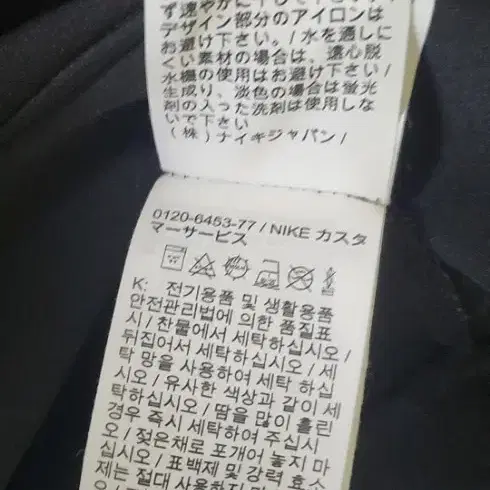 ず速やかに干して下さい。/
デザイン部分のアイロンは
お避け下さい。/水を通しに
くい素材の場合は、遠心脱
水機の使用はお避け下さい/
生成り、淡色の場合は蛍光
剤の入った洗剤は使用しな
いで下さい
(株)ナイキジャパン/
0120-6453-77 / NIKE カスタ
マーサービス
K: 전기용품 및 생활용품
안전관리법에 의한 품질표
시 / 찬물에서 세탁하십시오 /
뒤집어서 세탁하십시오 / 세
탁 망을 사용하여 세탁 하십
시오 / 유사한 색상과 같이 세
탁하십시오 / 땀을 많이 흘린
경우 즉시 세탁하여 주십시
오 / 젖은채로 포개어 놓지 마
십시오 / 표백제 및 강력 효소
제는 절대 사용하지 마